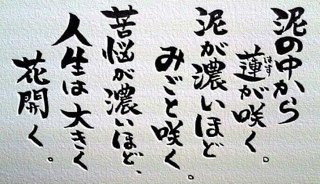 泥の中から
蓮が咲く。
はす
泥が濃いほど
みごと咲く。
苦悩が濃いほど、
人生は大きく
花開く。